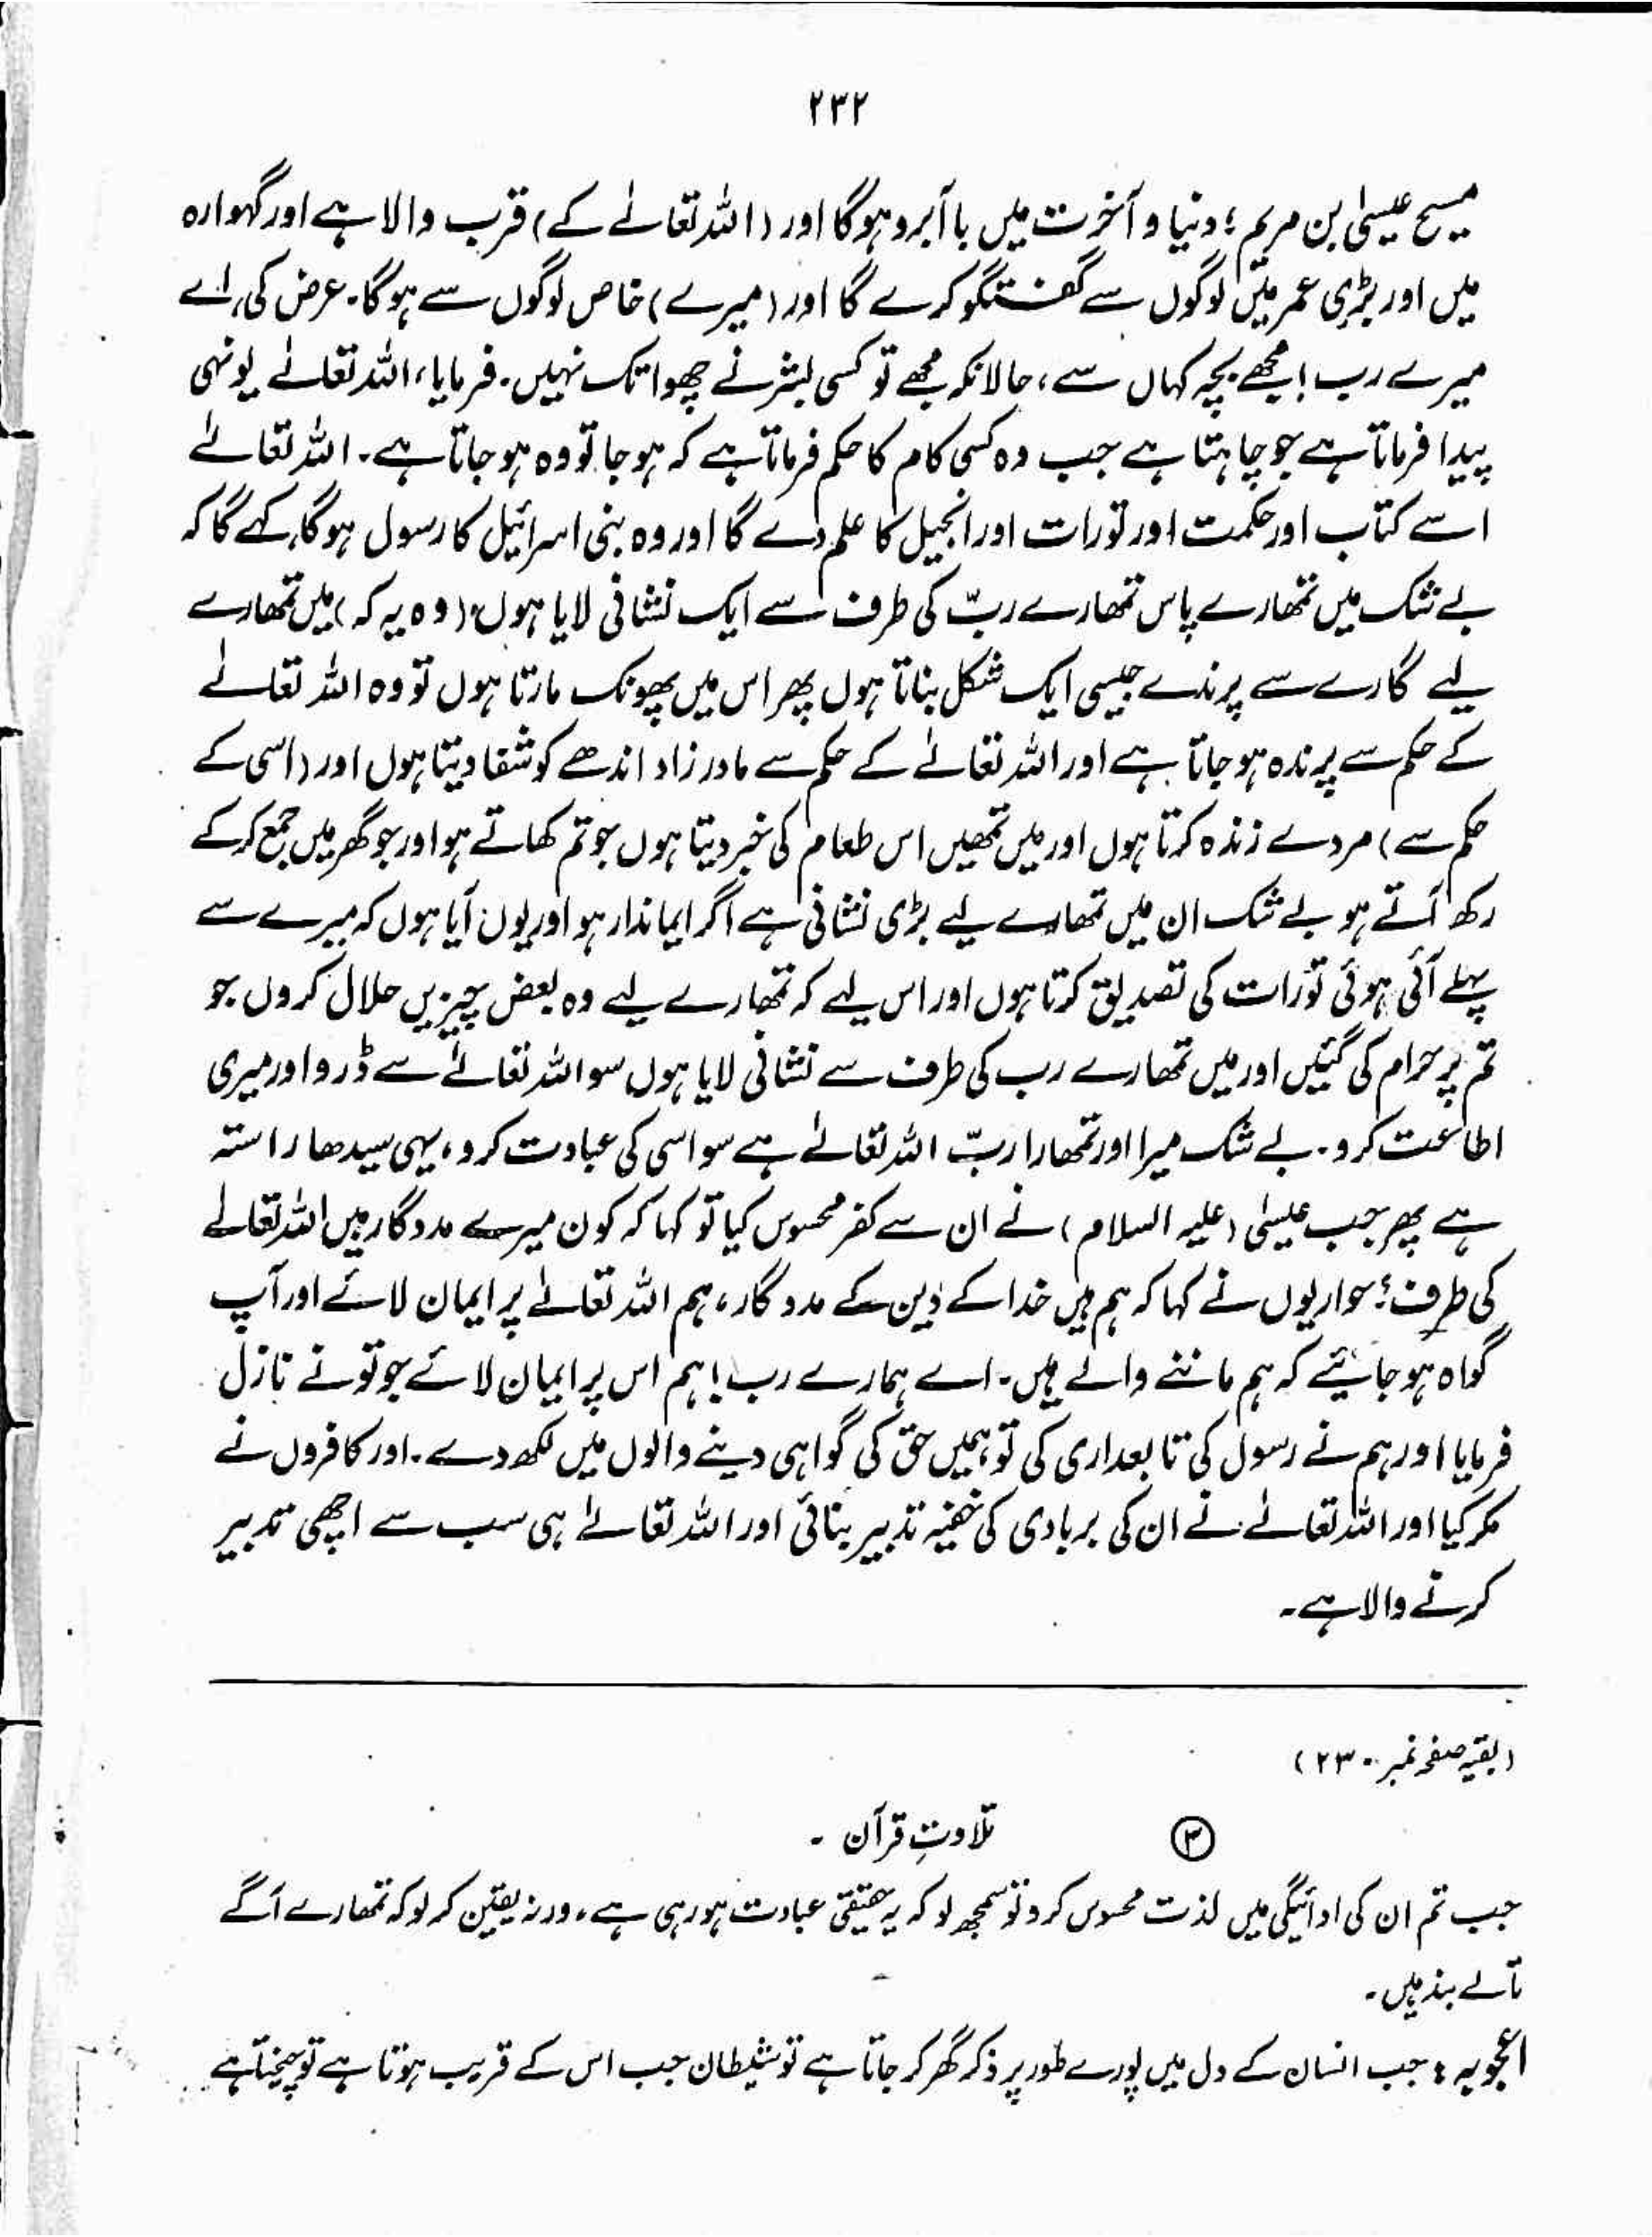 ۲۳۲
مسیح عیسیٰ بن مریم ؛ دنیا و آخرت میں باآبرو ہوگا اور (اللہ تعالےٰ کے) قرب والا ہے اور گہوارہ
میں اور بڑی عمر میں لوگوں سے گفتگو کرے گا اور (میرے) خاص لوگوں سے ہوگا۔ عرض کی، اے
میرے رب! مجھے بچہ کہاں سے، حالانکہ مجھے تو کسی بشر نے چھوا تک نہیں۔ فرمایا، اللہ تعالےٰ یونہی
پیدا فرماتا ہے جو چاہتا ہے جب وہ کسی کام کا حکم فرماتا ہے کہ ہو جا تو وہ ہو جاتا ہے۔ اللہ تعالےٰ
اسے کتاب اور حکمت اور تورات اور انجیل کا علم دے گا اور وہ بنی اسرائیل کا رسول ہوگا، کہے گا کہ
بے شک میں تمھارے پاس تمھارے ربّ کی طرف سے ایک نشانی لایا ہوں، (وہ یہ کہ) میں تمھارے
لیے گارے سے پرندے جیسی ایک شکل بناتا ہوں پھر اس میں پھونک مارتا ہوں تو وہ اللہ تعالےٰ
کے حکم سے پرندہ ہو جاتا ہے اور اللہ تعالےٰ کے حکم سے مادر زاد اندھے کو شفا دیتا ہوں اور (اسی کے
حکم سے) مردے زندہ کرتا ہوں اور میں تمھیں اس طعام کی خبر دیتا ہوں جو تم کھاتے ہو اور جو گھر میں جمع کرکے
رکھ آتے ہو بے شک ان میں تمھارے لیے بڑی نشانی ہے اگر ایماندار ہو اور یوں آیا ہوں کہ میرے سے
پہلے آئی ہوئی تورات کی تصدیق کرتا ہوں اور اس لیے کہ تمھارے لیے وہ بعض چیزیں حلال کروں جو
تم پر حرام کی گئیں اور میں تمھارے رب کی طرف سے نشانی لایا ہوں سو اللہ تعالےٰ سے ڈرو اور میری
اطاعت کرو۔ بے شک میرا اور تمھارا ربّ اللہ تعالےٰ ہے سو اسی کی عبادت کرو، یہی سیدھا راستہ
ہے پھر جب عیسیٰ (علیہ السلام) نے ان سے کفر محسوس کیا تو کہا کہ کون میرے مددگار ہیں اللہ تعالےٰ
کی طرف؛ حواریوں نے کہا کہ ہم ہیں خدا کے دین کے مدد گار، ہم اللہ تعالےٰ پر ایمان لائے اور آپ
گواہ ہو جائیے کہ ہم ماننے والے ہیں۔ اے ہمارے رب! ہم اس پر ایمان لائے جو تو نے نازل
فرمایا اور ہم نے رسول کی تابعداری کی تو ہمیں حق کی گواہی دینے والوں میں لکھ دے۔ اور کافروں نے
مکر کیا اور اللہ تعالےٰ نے ان کی بربادی کی خفیہ تدبیر بنائی اور اللہ تعالےٰ ہی سب سے اچھی تدبیر
کرنے والا ہے۔
(بقیہ صفحہ نمبر ۲۳۰)
③ تلاوتِ قرآن ۔
جب تم ان کی ادائیگی میں لذت محسوس کرو تو سمجھ لو کہ یہ حقیقی عبادت ہو رہی ہے، ورنہ یقین کر لو کہ تمھارے آگے
تالے بند ہیں۔
اعجوبہ : جب انسان کے دل میں پورے طور پر ذکر گھر کر جاتا ہے تو شیطان جب اس کے قریب ہوتا ہے تو چیختا ہے